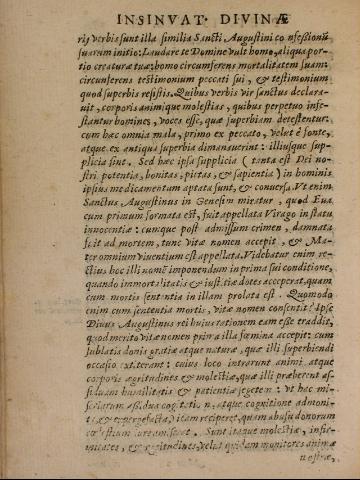 INSINVAT. DIVINÆ
ris verbis sunt illa similia Sancti Augustini confessionũ
suarum initio: Laudare te Domine vult homo, aliqua por-
tio creaturæ tuæ: homo circumferens mortalitatem suam:
circunferens testimonium peccati sui, & testimonium
quod superbis resistis. Quibus verbis vir sanctus declara-
uit, corporis animique molestias, quibus perpetuo infe-
stantur homines, voces esse, quæ superbiam detestentur.
cum hæc omnia mala, primo ex peccato, velut è fonte,
atque ex antiqua superbia dimanauerint: illiusque sup-
plicia sint. Sed hæc ipsa supplicia (tanta est Dei no-
stri potentia, bonitas, pietas, & sapientia) in hominis
ipsius medicamentum aptata sunt, & conuersa. Vt enim
Sanctus Augustinus in Genesim miratur, quod Eua
cum primum formata est, fuit appellata Virago in statu
innocentiæ: cumque post admissum crimen, damnata
fuit ad mortem, tunc vitæ nomen accepit, & Ma-
ter omnium viuentium est appellata. Videbatur enim re-
ctius hoc illi nomẽ imponendum in prima sui conditione,
quando immortalitatis & iustitiæ dotes acceperat, quam
cum mortis sententia in illam prolata est. Quomodo
enim cum sententia mortis, vitæ nomen consentit? Ipse
Diuus Augustinus rei huius rationem eam esse tradit,
quod merito vitæ nomen prima illa fœmina accepit: cum
sublatis donis gratiæ atque naturæ, quæ illi superbiendi
occasio extiterant: cuius loco intrarunt animi atque
corporis ægritudines & molestiæ, quæ illi præberent as-
siduam humilitatis & patientiæ segetem: vt hec mi-
seriarum assidua cogitation, atque cognitione admoni-
ta & expergefacta, itam reciperet, quam abusu donorum
cælestium amiserat. Sunt itaque molestiæ, infir-
mitates, & ægritudines, velut quidam monitores animæ
nostræ,